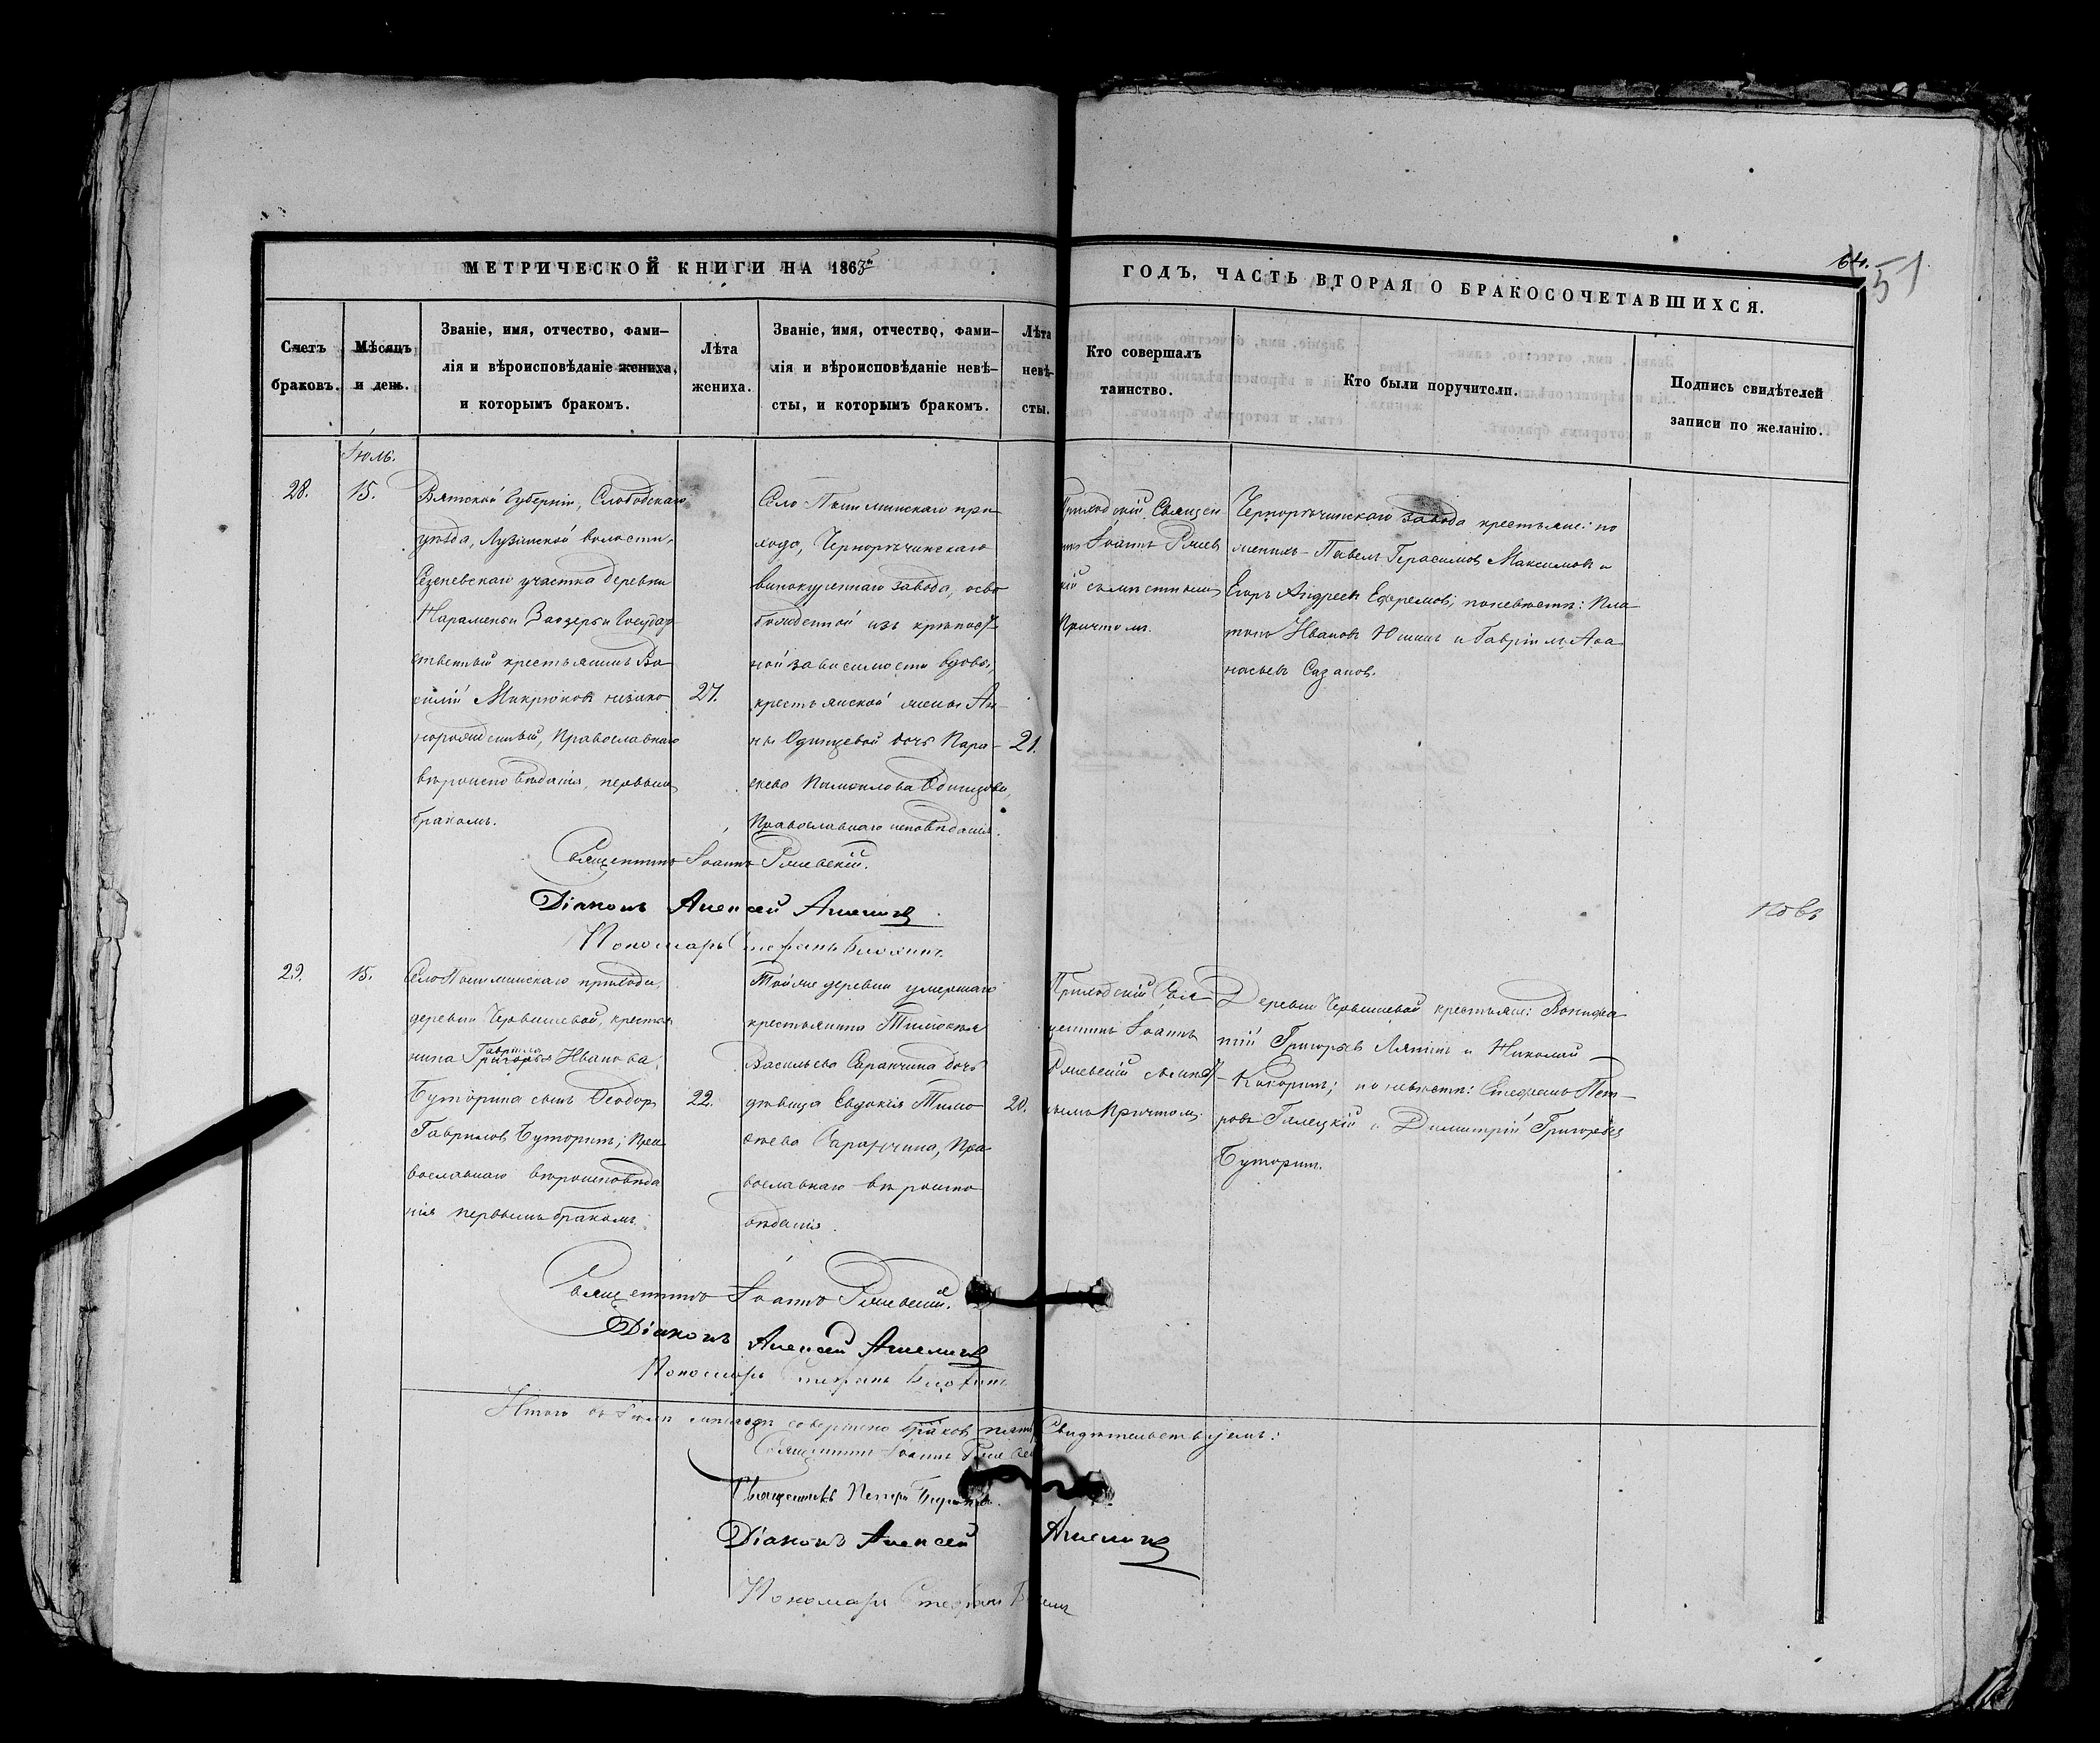 МЕТРИЧЕСКОЙ КНИГИ НА 1863й
ГОДЪ, ЧАСТЬ ВТОРАЯ О БРАКОСОЧЕТАВШИХСЯ.
64.
51
Счетъ
браковъ.
Мѣсяцъ
и день.
Званіе, имя, отчество, фами-
лія и вѣроисповѣданіе жениха,
и которымъ бракомъ.
Лѣта
жениха.
Званіе, имя, отчество, фами-
лія и вѣроисповѣданіе невѣ-
сты, и которымъ бракомъ.
Лѣта
невѣ-
сты.
Кто совершалъ
таинство.
Кто были поручители.
Подпись свидѣтелей
записи по желанію.
Іюль.
28.
15.
Вятской Губерніи, Слободскаго
уѣзда, волости,
участка деревни
Государ
ственный крестьянинъ Ва
силій Микрюковъ незако
норожденный, Православнаго
вѣроисповѣданія, первымъ
бракомъ.
27.
Село Пышминскаго при
хода, Чернорѣчинскаго
винокуреннаго завода, осво
божденной изъ крѣпост
ной зависимости вдовы,
крестьянской жены Ан
ны Одинцевой дочь Пара-
скева Одинцова,
Православнаго исповѣданія.
21.
Приходскій Священ
никъ Іоаннъ Ряжев
скій съ мѣстнымъ
Причтомъ.
Чернорѣчинскаго завода крестьяне: по
женихѣ - Павелъ Герасимовъ Максимовъ и
Егоръ Андреевъ Ефремовъ; по невѣстѣ: Пла
тонъ Ивановъ Юшинъ и Гавріилъ Афа
насьевъ Сазановъ.
Священникъ Іоаннъ Ряжевскій.
Діаконъ Алексей
Пономарь Стефанъ
29.
15.
Село Пышминскаго прихода,
деревни Червишевой, крестья
нина Гавріила Григорья Иванова
Буторина сынъ Феодоръ
Гавриловъ Буторинъ, Пра
вославнаго вѣроисповѣда
нія первымъ бракомъ.
22.
Той же деревни умершаго
крестьянина Тимофея
Васильева Саранчина дочь
дѣвица Евдокія Тимо
феева Саранчина, Пра
вославнаго вѣроиспо
вѣданія.
20.
Приходскій Свя
щенникъ Іоаннъ
Ряжевскій съ мѣст
нымъ Причтомъ.
Деревни Червишевой крестьяне: Вонифа
тій Григорьевъ Ляпинъ и Николай
Кокоринъ; по невѣстѣ: Стефанъ Пет-
ровъ Гилецкій и Димитрій Григорьевъ
Буторинъ.
Священникъ Іоаннъ Ряжевскій.
Діаконъ Алексей
Пономарь Стефанъ
Итого въ Іюлѣ мѣсяцѣ совершено браковъ пять Свидѣтельствуемъ:
Священникъ Іоаннъ Ряжевскій
Священникъ Петръ
Діаконъ Алексей
Пономарь Стефанъ